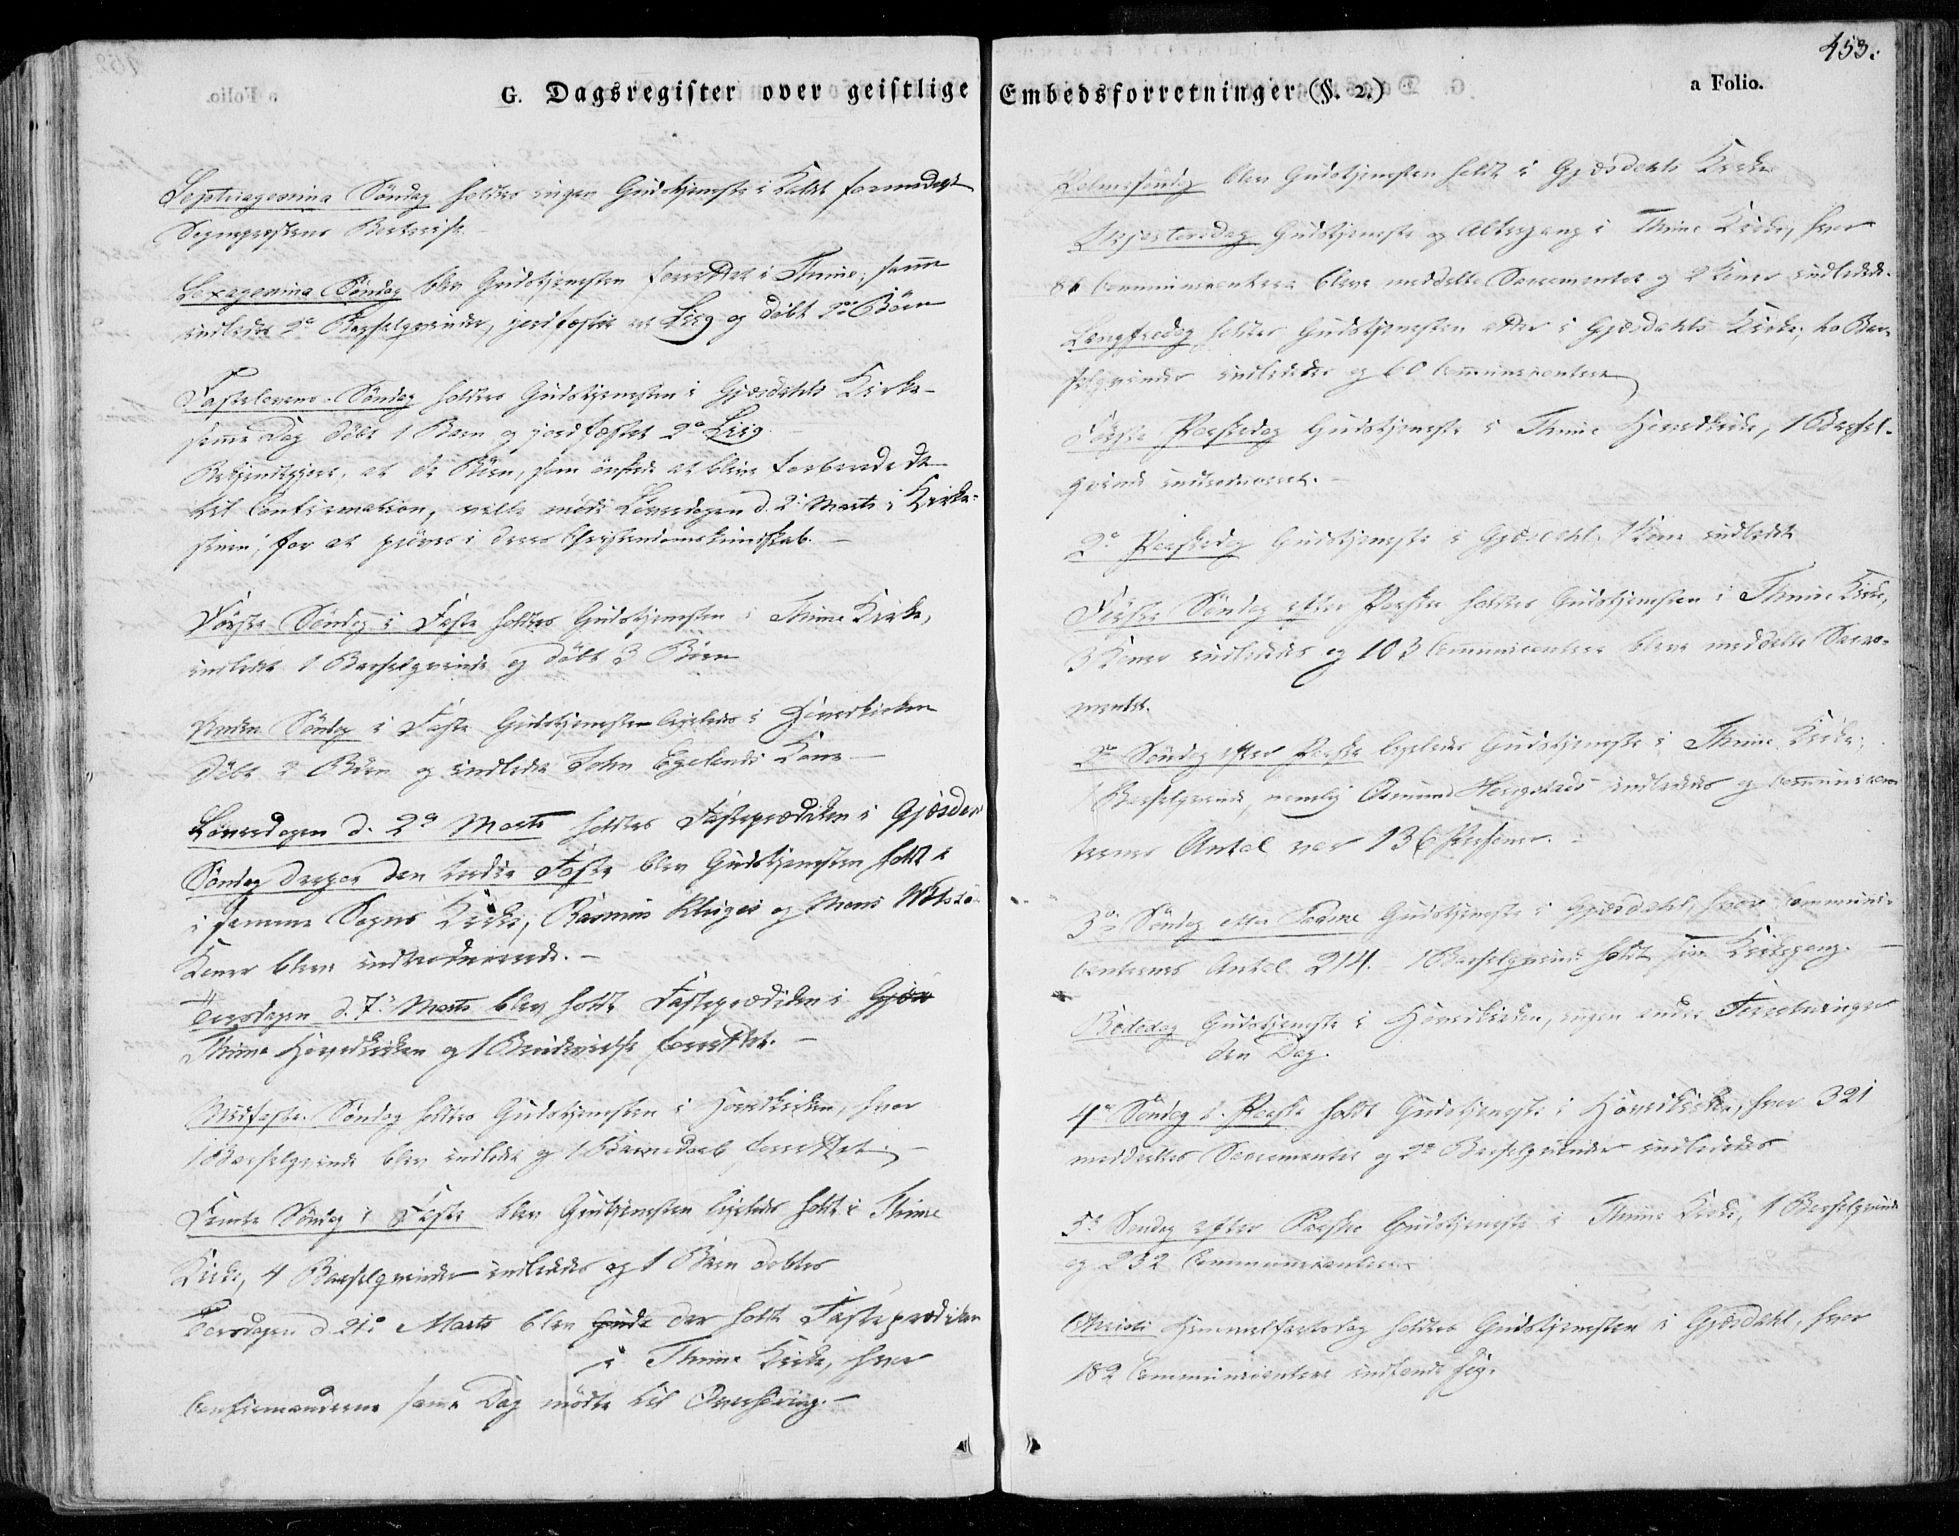 453.
G. Dagsregister over geistlige Embedsforretninger (§. 2.)
a Folio.
Septuagesima Søndag holdtes ingen Gudstjeneste i Kaldet formedelst
Sognepræstens
Sexagesima Søndag blev Gudstjenesten forrettet i Thime, samme
indledet 2de Barselqvinder, jordfæstet et Liig og døbt 2de Børn
Fastelavns-Søndag holdtes Gudstjenesten i Gjæsdahls Kirke
samme Dag døbt 1 Barn og jordfæstet 2de Liig.
Bekjendtgjort, at de Børn, som ønskede at blive forberedede
til Confirmation, ville møde Løverdagen d. 2den Marts i Kirke-
stuen, for at prøves i deres Christendomskundskab. –
Første Søndag i Faste holdtes Gudstjenesten i Thime Kirke,
indledet 1 Barselqvinde og døbt 3 Børn
Anden Søndag i Faste Gudstjenesten ligeledes i Hovedkirken
døbt 2 Børn og indledet John Egelands Kone –
Løverdagen d. 2den Marts holdtes Fasteprædiken i Gjæsdal
Søndag derpaa den tredie Faste blev Gudstjenesten holdt i
i samme Sogns Kirke; Rasmus og Mons
Koner bleve introducerede. –
Torsdagen d. 7de Marts blev holdt Fasteprædiken i Gjæs
Thime Hovedkirken og 1 Brudevielse forrettet. –
Midfaste Søndag holdtes Gudstjenesten i Hovedkirken, hvor
1 Barselqvinde blev indledet og 1 Barnedaab forrettet. –
Femte Søndag i Faste blev Gudstjenesten ligeledes holdt i Thime
Kirke, 4 Barselqvinder indlededes og 1 Barn døbtes
Torsdagen d. 21de Marts blev Guds der holdt Fasteprædiken
i Thime Kirke, hvor
Confirmanderne samme Dag mødte til Overhøring. –
Palmesøndag blev Gudstjenesten holdt i Gjæsdahls Kirke
Skjærtorsdag Gudstjeneste og Altergang i Thime Kirke, hvor
86 Communicantere bleve meddelte Sacramentet og 2 Koner indledede.
Langfredag holdtes Gudstjenesten atter i Gjæsdahls Kirke, to Bar-
selqvinder indlededes og 60 Communicantere
Første Paaskedag Gudstjeneste i Thime Hovedkirke, 1 Barsel-
qvinde introduceret. –
2den Paaskedag Gudstjeneste i Gjæsdahl, 1 Kone indledet
Første Søndag efter Paaske holdtes Gudstjenesten i Thime Kirke,
3 Koner indlededes og 103 Communicantere bleve meddelte Sacra-
mentet.
2den Søndag efter Paaske ligeledes Gudstjeneste i Thime Kirke;
1 Barselqvinde, nemlig Osmund Hørigstads indlededes og Communican
ternes Antal var 136 Personer. –
3die Søndag efter Paaske Gudstjeneste i Gjæsdahl, hvor Communi-
canternes Antal 214. 1 Barselqvinde holdt sin Kirkegang. –
Bededag Gudstjeneste i Hovedkirken, ingen anden Forretninger
den Dag.
4de Søndag e. Paaske holdt Gudstjeneste i Hovedkirken, hvor 321
meddeeltes Sacramentet og 2de Barselqvinder indlededes
5te Søndag efter Paaske Gudstjeneste i Thime Kirke, 1 Barselqvinde
og 232 Communicantere
Christi Himmelfartsdag holdtes Gudstjenesten i Gjæsdahl, hvor
182 Communicantere indfandt sig.